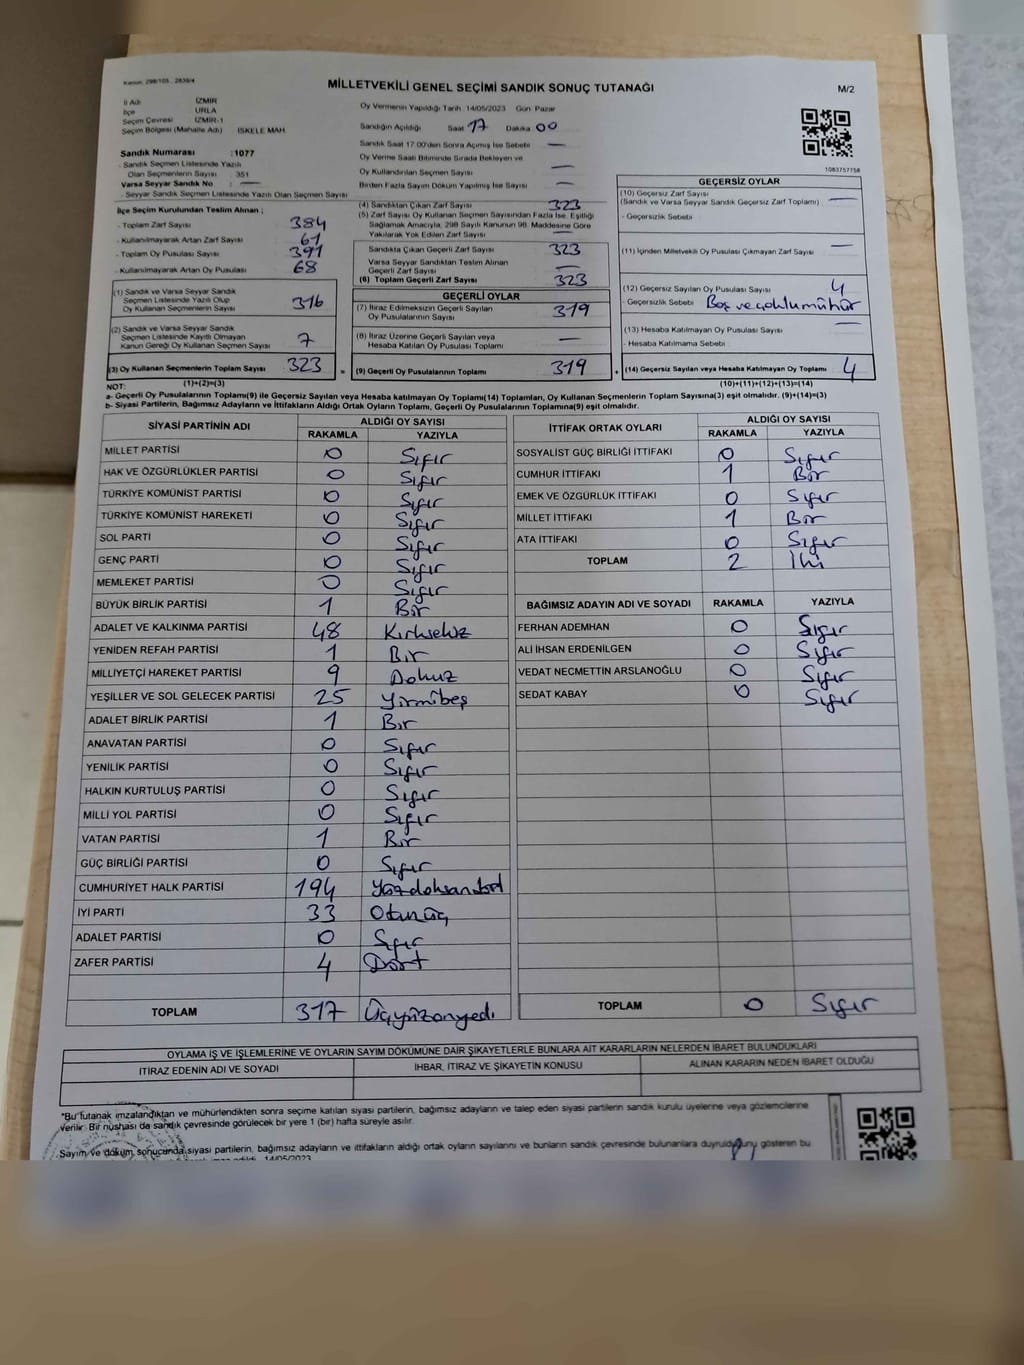 Kanun: 298/105 , 2839/4
MİLLETVEKİLİ GENEL SEÇİMİ SANDIK SONUÇ TUTANAĞI
M/2
İl Adı İZMİR
İlçe URLA
Seçim Çevresi İZMİR-1
Seçim Bölgesi (Mahalle Adı) İSKELE MAH.
Sandık Numarası :1077
- Sandık Seçmen Listesinde Yazılı
Olan Seçmenlerin Sayısı : 351
Varsa Seyyar Sandık No : —
- Seyyar Sandık Seçmen Listesinde Yazılı Olan Seçmen Sayısı
Oy Vermenin Yapıldığı Tarih: 14/05/2023 Gün: Pazar
Sandığın Açıldığı Saat 17 Dakika 00
Sandık Saat 17:00'den Sonra Açılmış İse Sebebi —
Oy Verme Saati Bitiminde Sırada Bekleyen ve
Oy Kullandırılan Seçmen Sayısı —
Birden Fazla Sayım Döküm Yapılmış İse Sayısı —
1083757758
İlçe Seçim Kurulundan Teslim Alınan ;
- Toplam Zarf Sayısı 384
- Kullanılmayarak Artan Zarf Sayısı 61
- Toplam Oy Pusulası Sayısı 391
- Kullanılmayarak Artan Oy Pusulası 68
(1) Sandık ve Varsa Seyyar Sandık
Seçmen Listesinde Yazılı Olup
Oy Kullanan Seçmenlerin Sayısı 316
(2) Sandık ve Varsa Seyyar Sandık
Seçmen Listesinde Kayıtlı Olmayan
Kanun Gereği Oy Kullanan Seçmen Sayısı 7
(3) Oy Kullanan Seçmenlerin Toplam Sayısı 323
(4) Sandıktan Çıkan Zarf Sayısı 323
(5) Zarf Sayısı Oy Kullanan Seçmen Sayısından Fazla İse, Eşitliği
Sağlamak Amacıyla, 298 Sayılı Kanunun 98. Maddesine Göre
Yakılarak Yok Edilen Zarf Sayısı —
Sandıkta Çıkan Geçerli Zarf Sayısı 323
Varsa Seyyar Sandıktan Teslim Alınan
Geçerli Zarf Sayısı —
(6) Toplam Geçerli Zarf Sayısı 323
GEÇERLİ OYLAR
(7) İtiraz Edilmeksizin Geçerli Sayılan
Oy Pusulalarının Sayısı 319
(8) İtiraz Üzerine Geçerli Sayılan veya
Hesaba Katılan Oy Pusulası Toplamı —
= (9) Geçerli Oy Pusulalarının Toplamı 319
GEÇERSİZ OYLAR
(10) Geçersiz Zarf Sayısı
(Sandık ve Varsa Seyyar Sandık Geçersiz Zarf Toplamı) —
- Geçersizlik Sebebi
(11) İçinden Milletvekili Oy Pusulası Çıkmayan Zarf Sayısı —
(12) Geçersiz Sayılan Oy Pusulası Sayısı 4
- Geçersizlik Sebebi Boş ve çoklu mühür
(13) Hesaba Katılmayan Oy Pusulası Sayısı —
- Hesaba Katılmama Sebebi
+ (14) Geçersiz Sayılan veya Hesaba Katılmayan Oy Toplamı 4
NOT: (1)+(2)=(3) (10)+(11)+(12)+(13)=(14)
a- Geçerli Oy Pusulalarının Toplamı(9) ile Geçersiz Sayılan veya Hesaba katılmayan Oy Toplamı(14) Toplamları, Oy Kullanan Seçmenlerin Toplam Sayısına(3) eşit olmalıdır. (9)+(14)=(3)
b- Siyasi Partilerin, Bağımsız Adayların ve İttifakların Aldığı Ortak Oyların Toplamı, Geçerli Oy Pusulalarının Toplamına(9) eşit olmalıdır.
SİYASİ PARTİNİN ADI ALDIĞI OY SAYISI
RAKAMLA YAZIYLA
MİLLET PARTİSİ 0 Sıfır
HAK VE ÖZGÜRLÜKLER PARTİSİ 0 Sıfır
TÜRKİYE KOMÜNİST PARTİSİ 0 Sıfır
TÜRKİYE KOMÜNİST HAREKETİ 0 Sıfır
SOL PARTİ 0 Sıfır
GENÇ PARTİ 0 Sıfır
MEMLEKET PARTİSİ 0 Sıfır
BÜYÜK BİRLİK PARTİSİ 1 Bir
ADALET VE KALKINMA PARTİSİ 48 Kırksekiz
YENİDEN REFAH PARTİSİ 1 Bir
MİLLİYETÇİ HAREKET PARTİSİ 9 Dokuz
YEŞİLLER VE SOL GELECEK PARTİSİ 25 Yirmibeş
ADALET BİRLİK PARTİSİ 1 Bir
ANAVATAN PARTİSİ 0 Sıfır
YENİLİK PARTİSİ 0 Sıfır
HALKIN KURTULUŞ PARTİSİ 0 Sıfır
MİLLİ YOL PARTİSİ 0 Sıfır
VATAN PARTİSİ 1 Bir
GÜÇ BİRLİĞİ PARTİSİ 0 Sıfır
CUMHURİYET HALK PARTİSİ 194 Yüzdoksandört
İYİ PARTİ 33 Otuzüç
ADALET PARTİSİ 0 Sıfır
ZAFER PARTİSİ 4 Dört
TOPLAM 317 Üçyüzonyedi
İTTİFAK ORTAK OYLARI ALDIĞI OY SAYISI
RAKAMLA YAZIYLA
SOSYALİST GÜÇ BİRLİĞİ İTTİFAKI 0 Sıfır
CUMHUR İTTİFAKI 1 Bir
EMEK VE ÖZGÜRLÜK İTTİFAKI 0 Sıfır
MİLLET İTTİFAKI 1 Bir
ATA İTTİFAKI 0 Sıfır
TOPLAM 2 İki
BAĞIMSIZ ADAYIN ADI VE SOYADI RAKAMLA YAZIYLA
FERHAN ADEMHAN 0 Sıfır
ALİ İHSAN ERDENİLGEN 0 Sıfır
VEDAT NECMETTİN ARSLANOĞLU 0 Sıfır
SEDAT KABAY 0 Sıfır
TOPLAM 0 Sıfır
OYLAMA İŞ VE İŞLEMLERİNE VE OYLARIN SAYIM DÖKÜMÜNE DAİR ŞİKAYETLERLE BUNLARA AİT KARARLARIN NELERDEN İBARET BULUNDUKLARI
İTİRAZ EDENİN ADI VE SOYADI İHBAR, İTİRAZ VE ŞİKAYETİN KONUSU ALINAN KARARIN NEDEN İBARET OLDUĞU
*Bu tutanak imzalandıktan ve mühürlendikten sonra seçime katılan siyasi partilerin, bağımsız adayların ve talep eden siyasi partilerin sandık kurulu üyelerine veya gözlemcilerine
verilir. Bir nüshası da sandık çevresinde görülecek bir yere 1 (bir) hafta süreyle asılır.
Sayım ve döküm sonucunda siyasi partilerin, bağımsız adayların ve ittifakların aldığı ortak oyların sayılarını ve bunların sandık çevresinde bulunanlara duyrulduğunu gösteren bu
14/05/2023